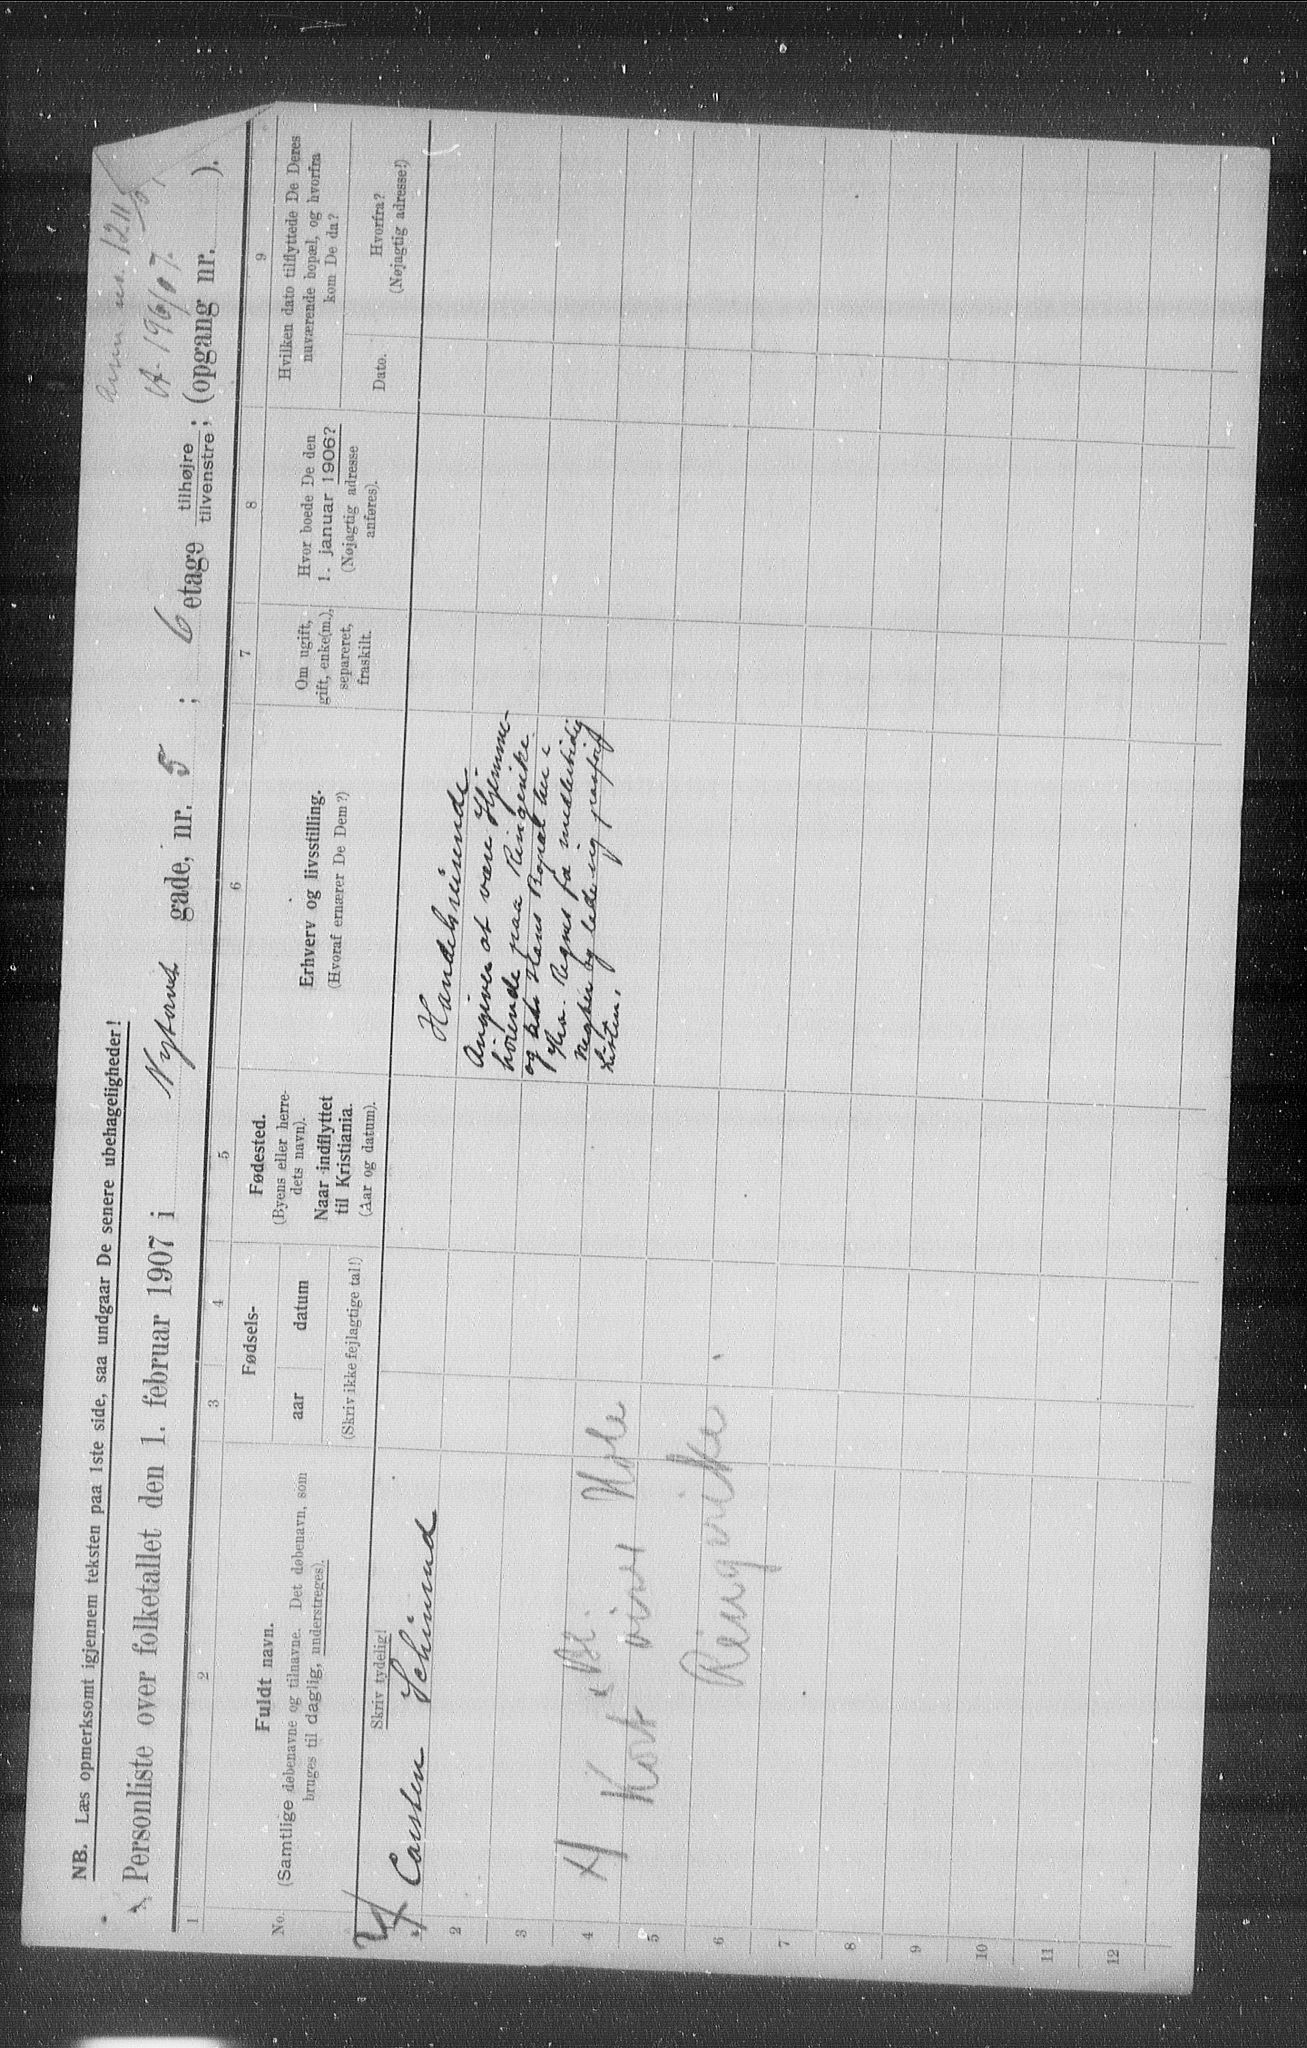 NB. Læs opmerksomt igjennem teksten paa 1ste side, saa undgaar De senere ubehageligheder!
1211
A. 196/07.
Personliste over folketallet den 1. februar 1907 i Nytorvet gade, nr. 5 ; 6 etage tilhøjre ; (opgang nr. ).
tilvenstre;
1 2 3 4 5 6 7 8 9
No.
Fuldt navn.
(Samtlige døbenavne og tilnavne. Det døbenavn, som
bruges til daglig, understreges).
Skriv tydelig!
Fødsels-
aar datum
(Skriv ikke fejlagtige tal!)
Fødested.
(Byens eller herre-
dets navn).
Naar indflyttet
til Kristiania.
(Aar og datum).
Erhverv og livsstilling.
(Hvoraf ernærer De Dem?)
Om ugift,
gift, enke(m.),
separeret,
fraskilt.
Hvor boede De den
1. januar 1906?
(Nøjagtig adresse
anføres).
Hvilken dato tilflyttede De Deres
nuværende bopæl, og hvorfra
kom De da?
Dato.
Hvorfra?
(Nøjagtig adresse!)
Carsten Schmud
Handelsreisende
Angiver at være Hjemme-
hørende paa Ringerike
og Hans Bopæl her i
Kra. Regnes for midlertidig
Listen.
2
3
4
5
6
7
8
9
10
11
12
Kort Hole
Ringerike.